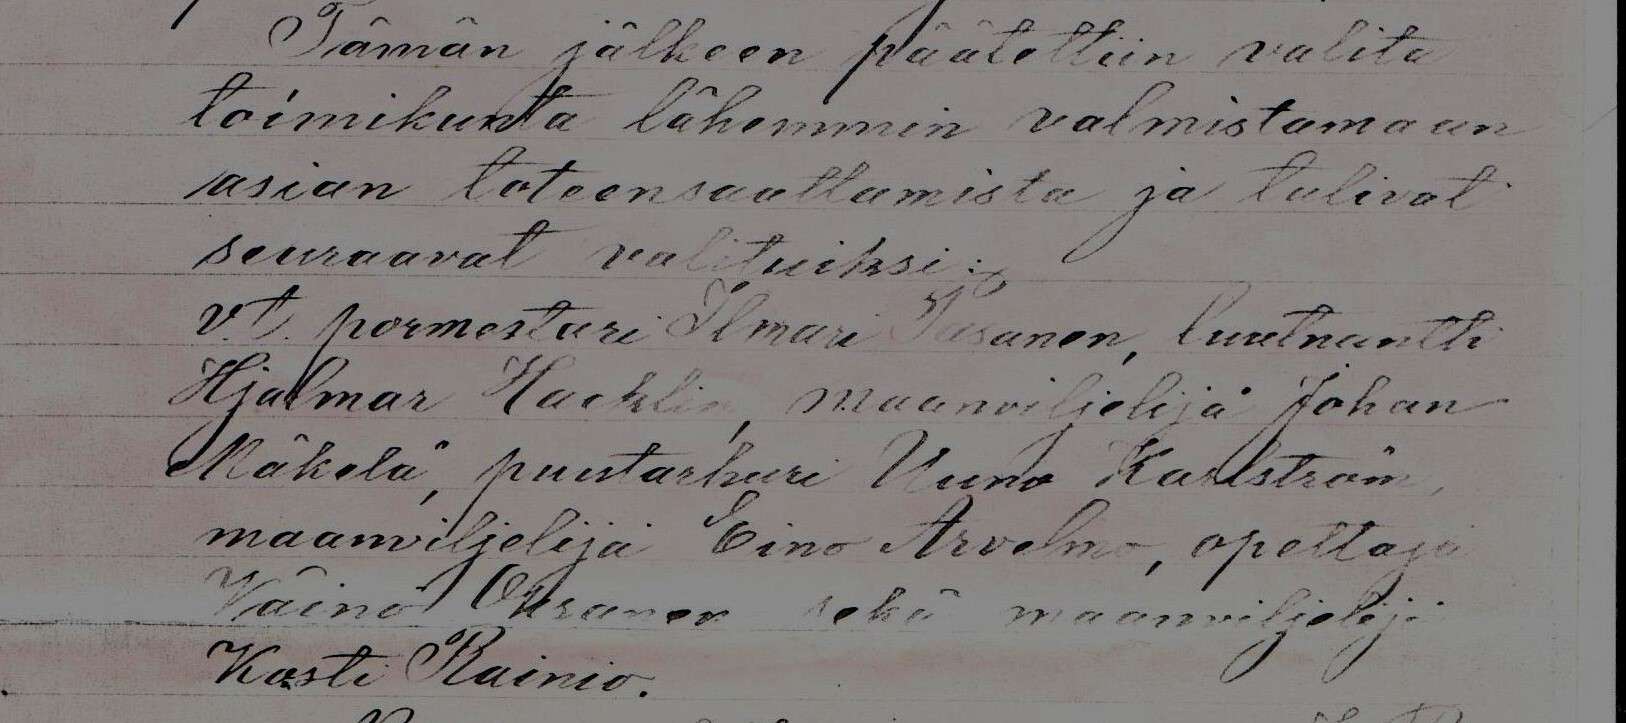 Tämän jälkeen päätettiin valita
toimikunta lähemmin valmistamaan
asian toteensaattamista ja tulivat
seuraavat valituiksi:
v.t. pormestari Ilmari Tasanen, luutnantti
Hjalmar Hacklin, maanviljelijä Johan
Mäkelä, puutarhuri Uuno Karlström,
maanviljelijä Eino Arvelmo, opettaja
Väinö Oksanen sekä maanviljelijä
Kosti Rainio.